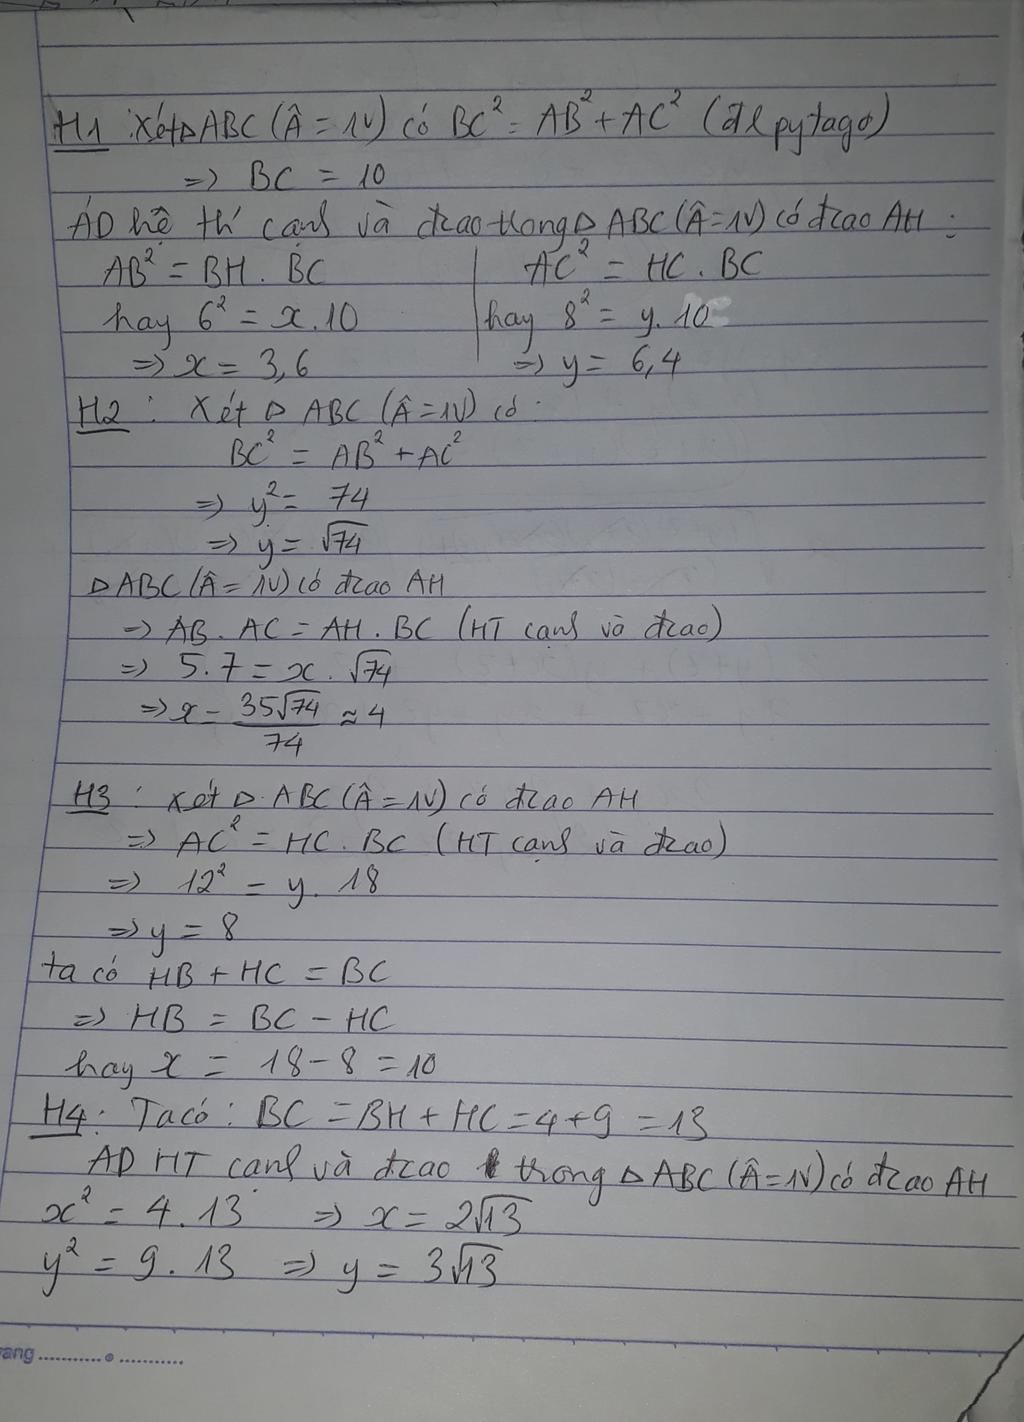 H1 : Xét △ABC (Â = 1V) có BC² = AB² + AC² (đl pytago)
=> BC = 10
ÁD hệ th' cạnh và đcao trong △ ABC (Â=1V) có đcao AH :
AB² = BH . BC | AC² = HC . BC
hay 6² = x.10 | hay 8² = y.10
=> x = 3,6 | => y = 6,4
H2 : Xét △ ABC (Â=1V) có :
BC² = AB² + AC²
=> y² = 74
=> y = √74
△ABC (Â = 1V) có đcao AH
=> AB . AC = AH . BC (HT cạnh và đcao)
=> 5.7 = x . √74
=> x = 35√74/74 ≈ 4
H3 : Xét △ ABC (Â = 1V) có đcao AH
=> AC² = HC . BC (HT cạnh và đcao)
=> 12² = y . 18
=> y = 8
ta có HB + HC = BC
=> HB = BC - HC
hay x = 18 - 8 = 10
H4 : Ta có : BC = BH + HC = 4 + 9 = 13
AD HT cạnh và đcao trong △ ABC (Â=1V) có đcao AH
x² = 4 . 13 => x = 2√13
y² = 9 . 13 => y = 3√13